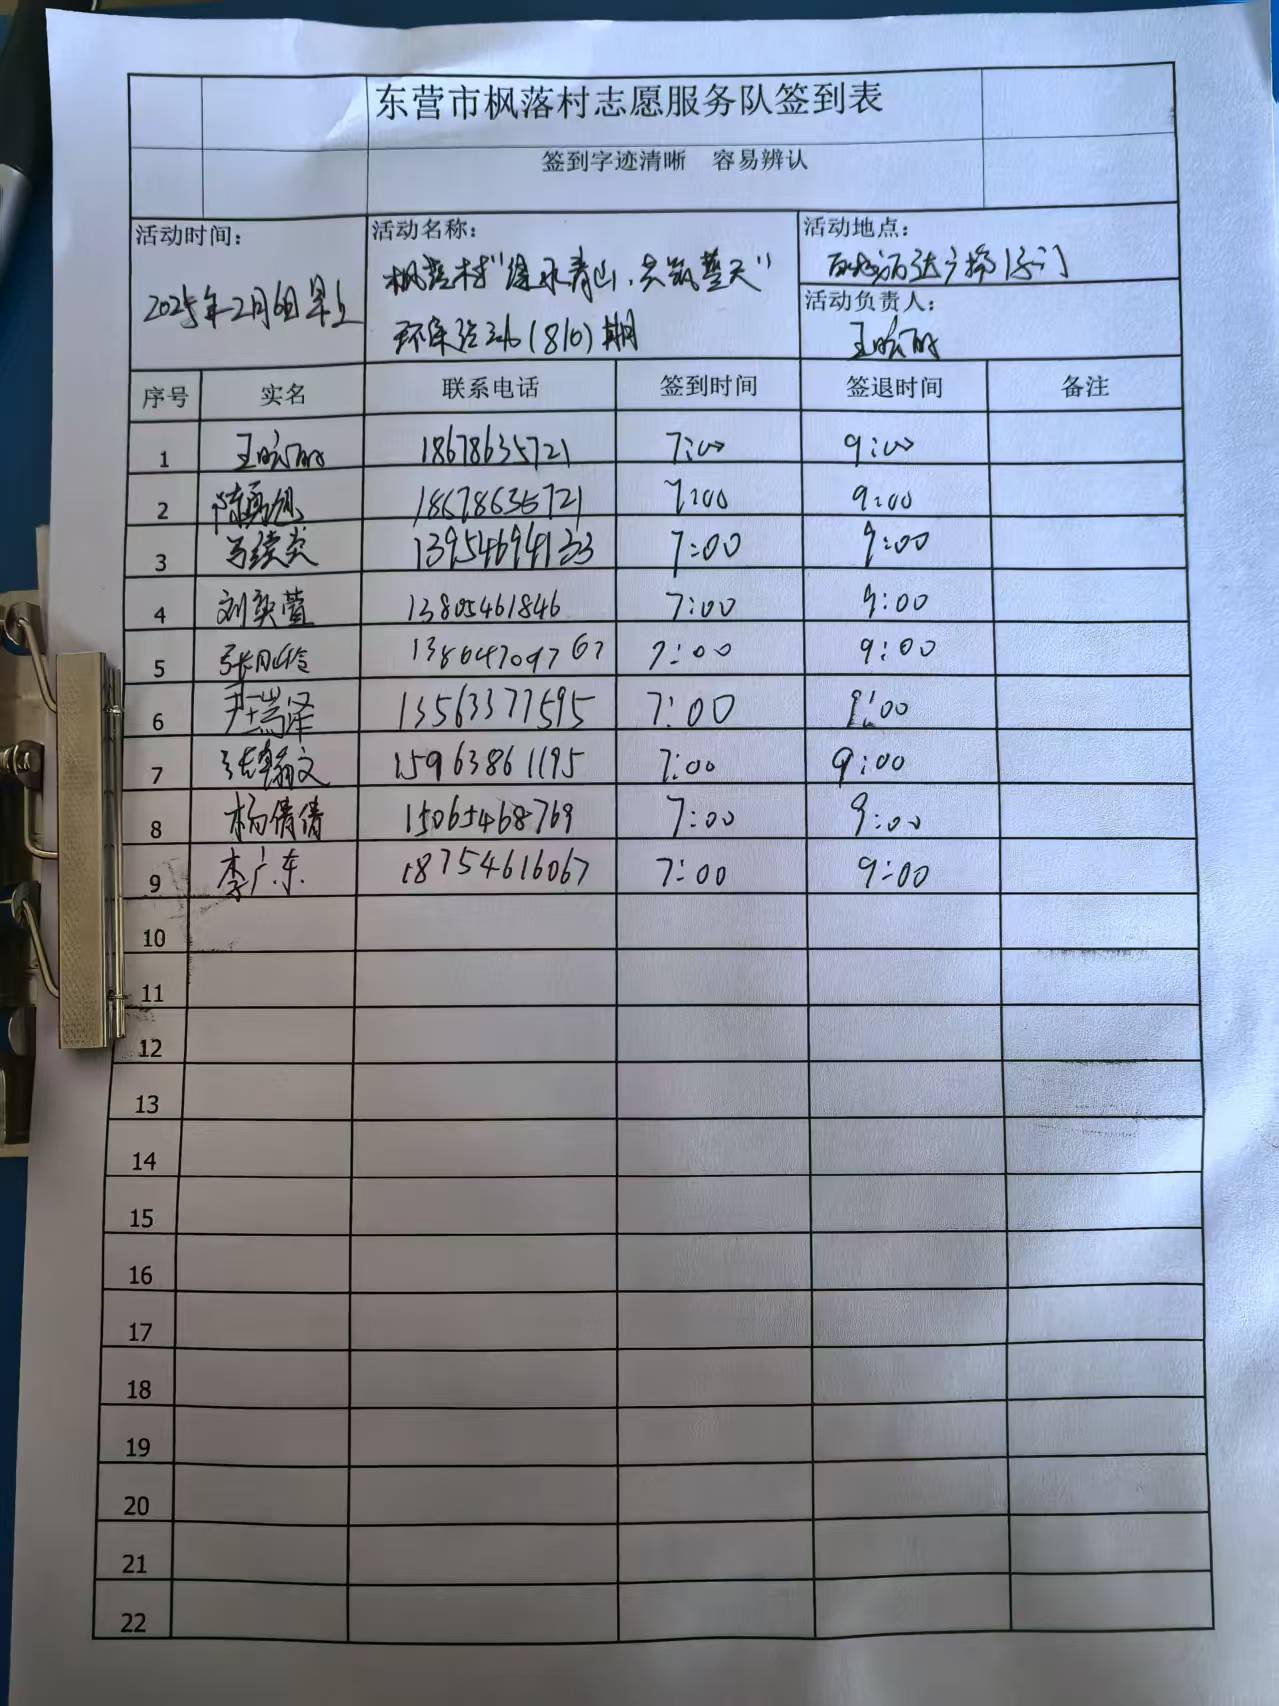 东营市枫落村志愿服务队签到表
签到字迹清晰 容易辨认
活动时间：
2025年2月6日早上
活动名称：
枫落村"绿水青山，共筑蓝天"
环保活动（810）期
活动地点：
万达广场1号门
活动负责人：
序号 实名 联系电话 签到时间 签退时间 备注
1 18678635721 7:00 9:00
2 18678635721 7:00 9:00
3 13954694133 7:00 9:00
4 刘奕萱 13805461846 7:00 9:00
5 7:00 9:00
6 尹瑞泽 13563377595 7:00 9:00
7 张翰文 15963861195 7:00 9:00
8 杨倩倩 15065468769 7:00 9:00
9 李广东 18754616067 7:00 9:00
10
11
12
13
14
15
16
17
18
19
20
21
22